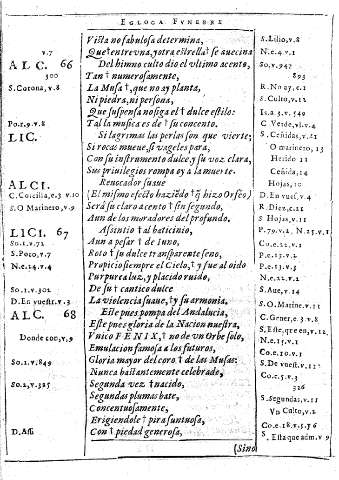 EGLOGA FVNEBRE
Vista no fabulosa determina, S. Lilio, v.8
v.7 Que † entre vna, y otra estrella † se auecina N.e.4.v.1
ALC. 66 Del himno culto dio el vltimo acento, So.v.947
500 Tan † numerosamente, 893
S. Corona, v.8 La Musa †, que no ay planta, R.No 07. c.1
Ni piedra, ni persona, S. Culto, v.12
Que suspensa no siga el † dulce estilo: Is.a.5.v.549
Po.1.9.v.8 Tal la musica es de † su concento. C Verde, vi.v.4
LIC. Si lagrimas las perlas son que vierte; S. Ceñidas, v.11
Si rocas mueue, si vageles para, O marinero, 13
Con su instrumento dulce, y su voz clara, Herido 11
Sus priuilegios rompa oy a la muerte. Ceñida, 14
ALCI. Renouador suaue Hojas, 10
C. Corcilla, e.3 v.10 (El mismo efecto haziẽdo † q̃ hizo Orfeo) D. En vues, v.4
S.O Marinero, v.9 Será su claro acento † sin segundo, R. Diez, c.12
Aun de los moradores del profundo. S Hojas, v.11
LICI. 67 Assiento † al baticinio, P.79.v.2. N.25.v.1
So.1.v.72 Aun a pesar † de Iuno, Co.e.22.v.1
S. Poco, v.7 Roto † su dulce transparente seno, P.e.15.v.2
N.e.24.v.4 Propicio siempre el Cielo, † y fue al oido P.e.13.v.5
Purpurea luz, y placido ruido, N.e.22.v.2
So.1.v.302 De su † cantico dulce S. Aue, v.14
D. En vuest.v.3 La violencia suaue, † y su armonia. S.O. Marine. v.11
ALC. 68 Este pues pompa del Andalucia, C. Gener. e.3.v.8
Este pues gloria de la Nacion nuestra, S. Este, que en, v.12.
Donde 100, v,9 Vnico FENIX, † no de vn Orbe solo, N.e.15.v.1
Emulacion famosa a los futuros, Co.e.10.v.1
So.1.v.849 Gloria mayor del coro † de las Musas: S. De vuest. v.11
Nunca bastantemente celebrade, Co.e.5.v.3
So.2, v.325 Segunda vez † nacido, 326
Segundas plumas bate, S. Segundas, v.11
Concentuosamente, Vn Culto, v.2
Erigiendole † pira suntuosa, Co.e.18.v.5.y 6
D. Assi Con † piedad generosa, S. Esta que adm. v.9
(Sino